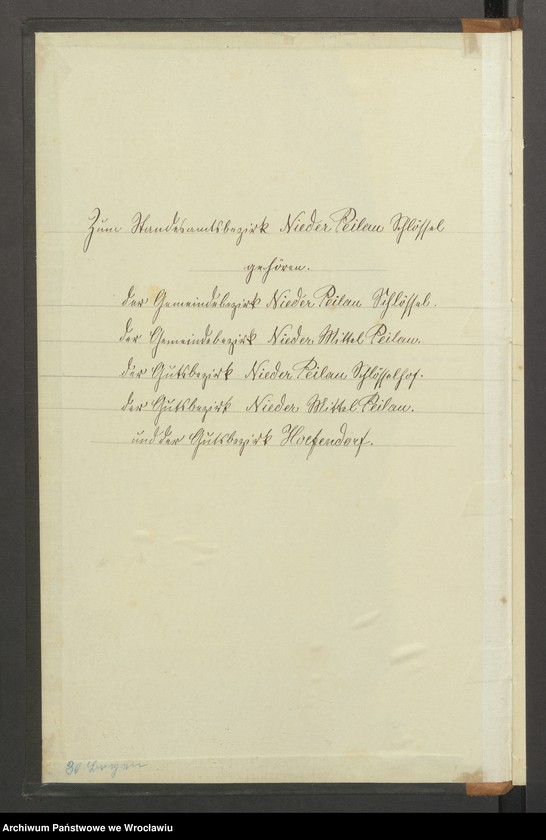 Zum Standesamtsbezirk Nieder Peilau Schlössel
gehören.
der Gemeindebezirk Nieder Peilau Schlössel.
der Gemeindebezirk Nieder Mittel Peilau.
der Gutsbezirk Nieder Peilau Schlösselhof.
der Gutsbezirk Nieder Mittel Peilau.
und der Gutsbezirk
30 Bogen
Archiwum Państwowe we Wrocławiu